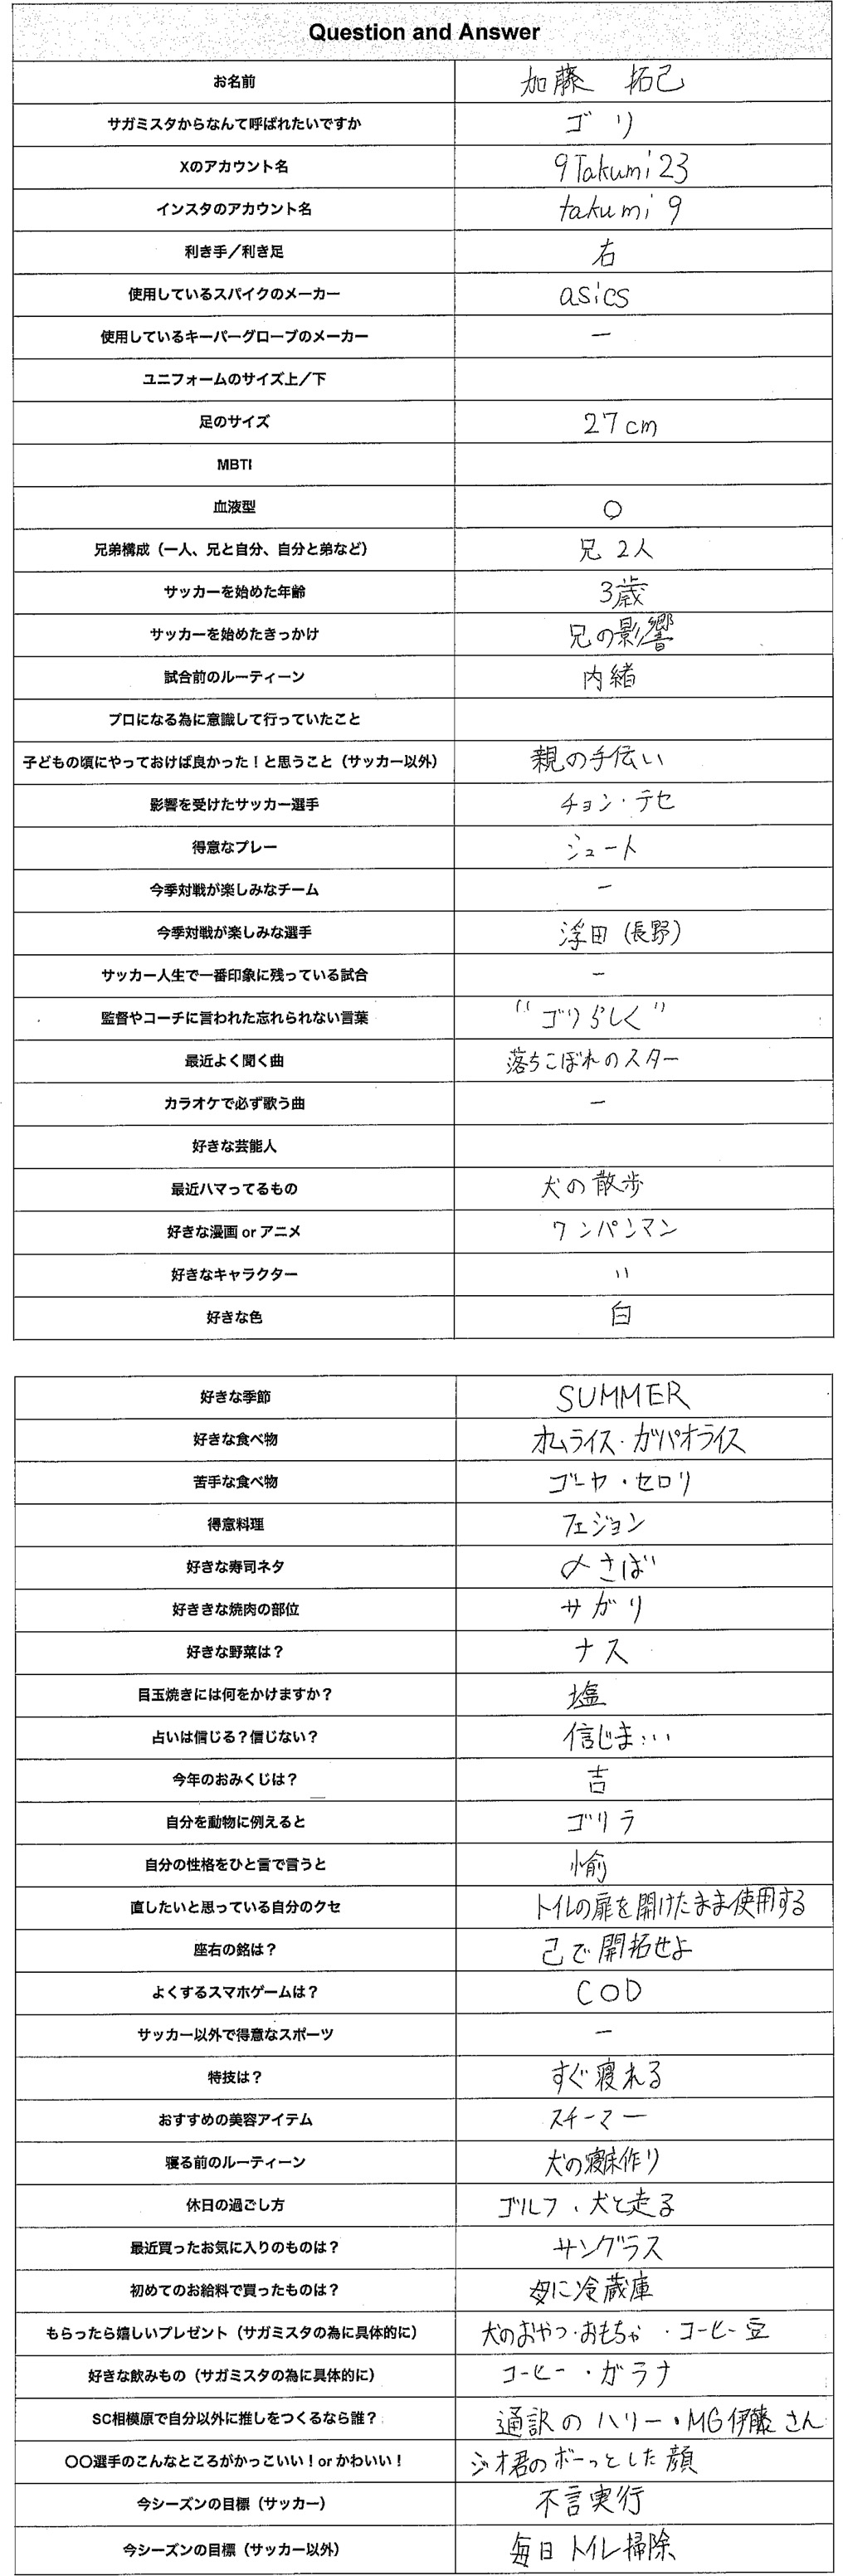 Question and Answer
お名前 加藤 拓己
サガミスタからなんて呼ばれたいですか ゴリ
Xのアカウント名 9Takumi23
インスタのアカウント名 takumi9
利き手/利き足 右
使用しているスパイクのメーカー asics
使用しているキーパーグローブのメーカー ー
ユニフォームのサイズ上/下
足のサイズ 27cm
MBTI
血液型 O
兄弟構成(一人、兄と自分、自分と弟など) 兄 2人
サッカーを始めた年齢 3歳
サッカーを始めたきっかけ 兄の影響
試合前のルーティーン 内緒
プロになる為に意識して行っていたこと
子どもの頃にやっておけば良かった!と思うこと(サッカー以外) 親の手伝い
影響を受けたサッカー選手 チョン・テセ
得意なプレー シュート
今季対戦が楽しみなチーム ー
今季対戦が楽しみな選手 浮田(長野)
サッカー人生で一番印象に残っている試合 ー
監督やコーチに言われた忘れられない言葉 "ゴリらしく"
最近よく聞く曲 落ちこぼれのスター
カラオケで必ず歌う曲 ー
好きな芸能人
最近ハマってるもの 犬の散歩
好きな漫画 or アニメ ワンパンマン
好きなキャラクター 〃
好きな色 白
好きな季節 SUMMER
好きな食べ物 オムライス・ガパオライス
苦手な食べ物 ゴーヤ・セロリ
得意料理 フェジョン
好きな寿司ネタ 〆さば
好ききな焼肉の部位 サガリ
好きな野菜は? ナス
目玉焼きには何をかけますか? 塩
占いは信じる?信じない? 信じま…
今年のおみくじは? 吉
自分を動物に例えると ゴリラ
自分の性格をひと言で言うと 愉
直したいと思っている自分のクセ トイレの扉を開けたまま使用する
座右の銘は? 己で開拓せよ
よくするスマホゲームは? COD
サッカー以外で得意なスポーツ ー
特技は? すぐ寝れる
おすすめの美容アイテム スチーマー
寝る前のルーティーン 犬の寝床作り
休日の過ごし方 ゴルフ、犬と走る
最近買ったお気に入りのものは? サングラス
初めてのお給料で買ったものは? 母に冷蔵庫
もらったら嬉しいプレゼント(サガミスタの為に具体的に) 犬のおやつ・おもちゃ・コーヒー豆
好きな飲みもの(サガミスタの為に具体的に) コーヒー・ガラナ
SC相模原で自分以外に推しをつくるなら誰? 通訳のハリー・MG伊藤さん
〇〇選手のこんなところがかっこいい!or かわいい! ジオ君のボーっとした顔
今シーズンの目標(サッカー) 不言実行
今シーズンの目標(サッカー以外) 毎日トイレ掃除